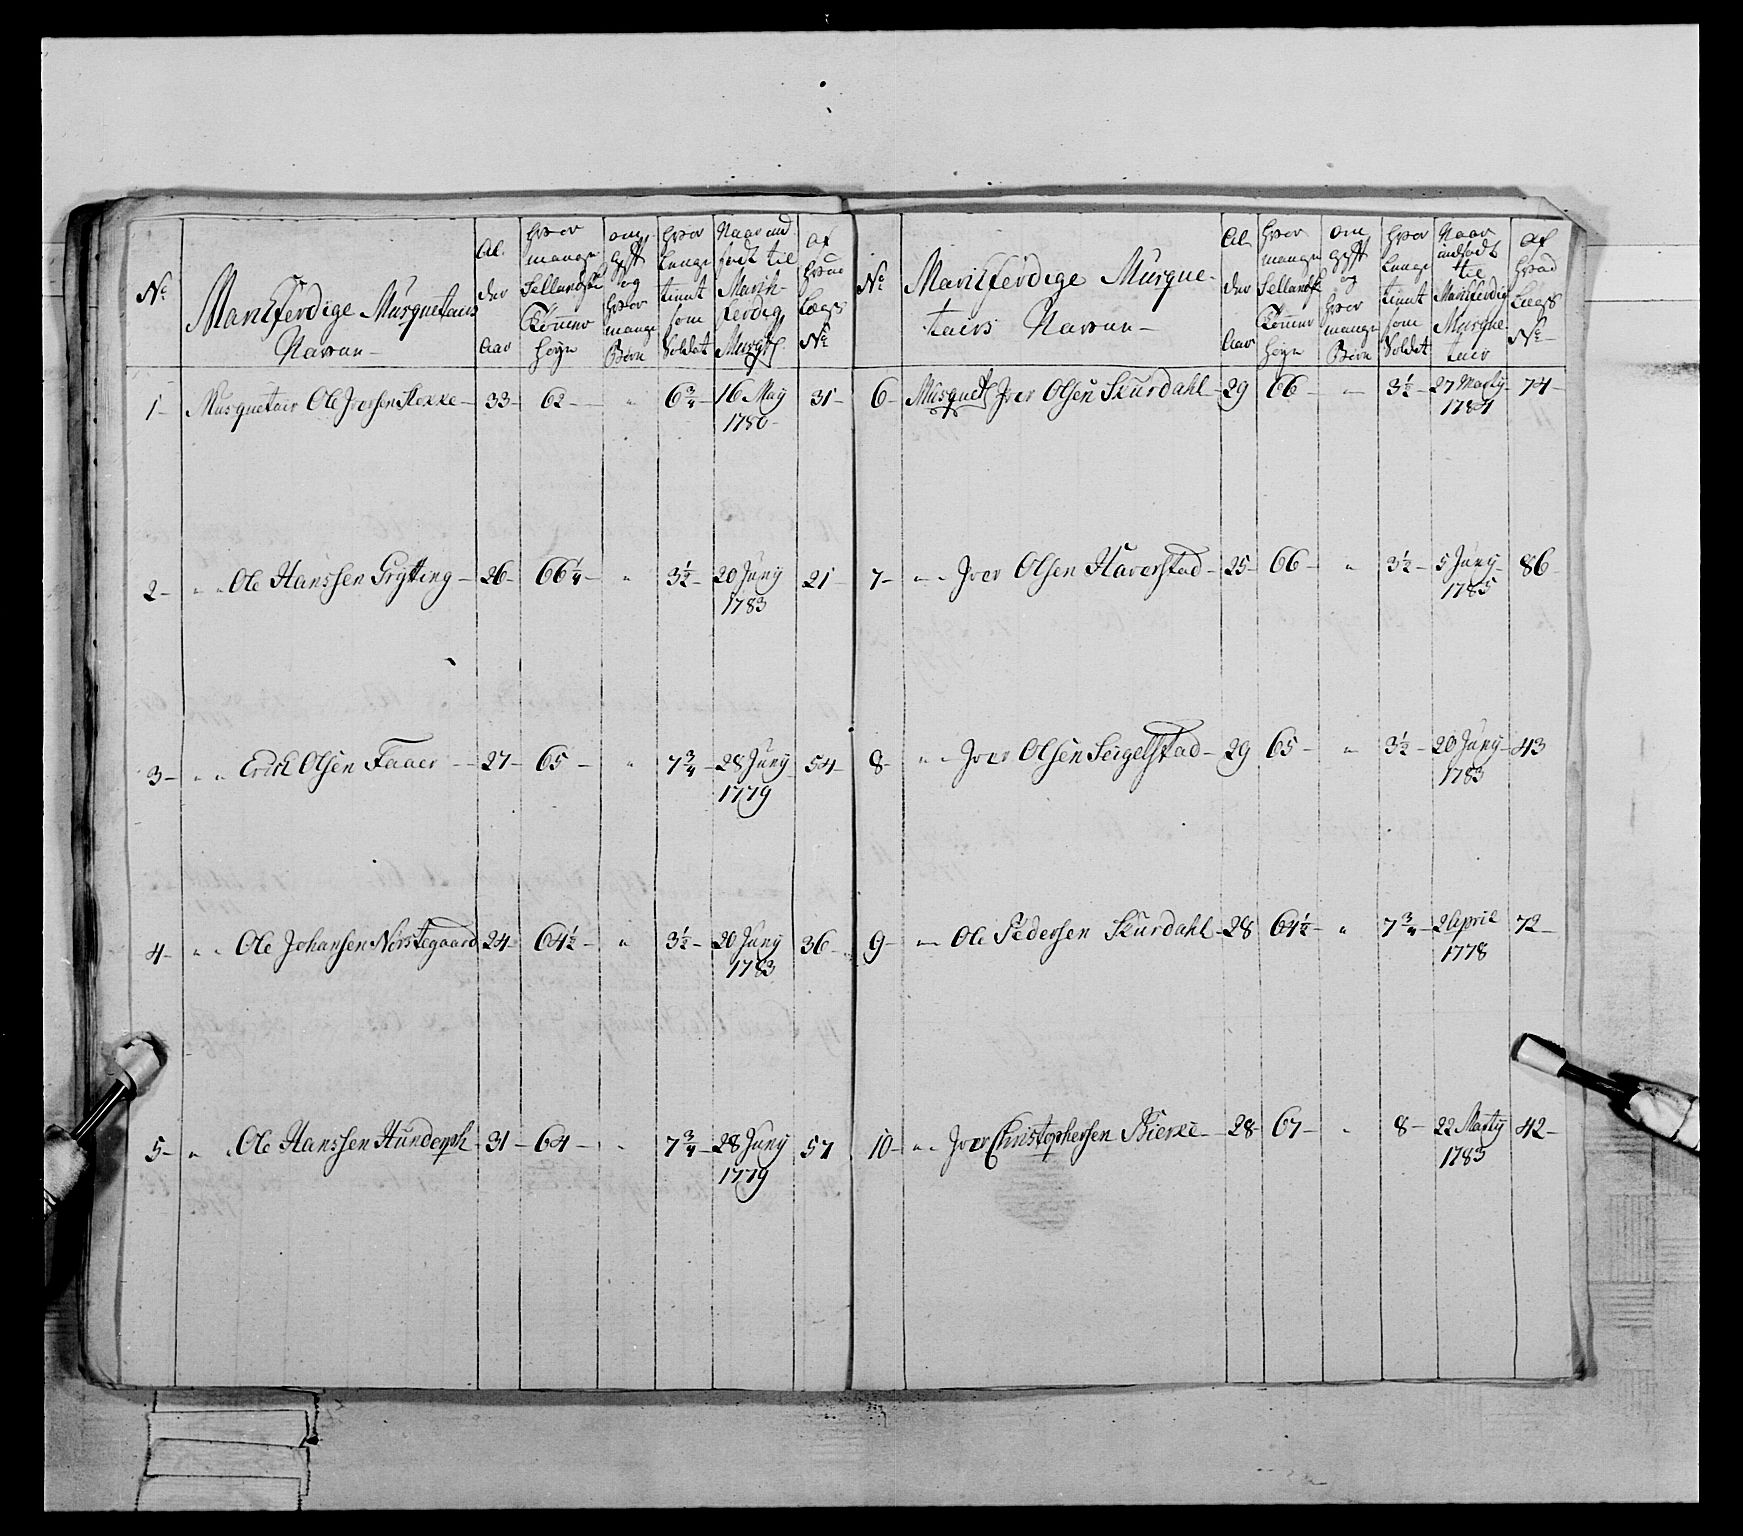 No
Marchferdige Musquetairs
Navne
Al
der
Aar
hvor
mange
Sellandske
Tommer
høye
om
gift
og
hvor
mange
Børn
hvor
lenge
tient
som
Soldat
Naar ind
født til
March-
ferdig
Musqt
af
hvad
Lægs
No
1 Musquetair Ole Joersen Kekke 33 62 " 6 3/4 16 May 31
1780
2 " " Ole Hanssen Grytting 26 66 1/4 " 3 1/2 20 Juny 21
1783
3 " " Erich Olsen Faaer 27 65 " 7 3/4 28 Juny 54
1779
4 " " Ole Johansen Norstegaard 24 64 1/2 " 3 1/2 20 Juny 36
1783
5 " " Ole Hanssen Hundeph 31 64 " 7 3/4 28 Juny 57
1779
No
Marchferdige Musque-
tairs Navne
Al
der
Aar
hvor
mange
Sellandsk
Tommer
høye
om
gift
og
hvor
mange
Børn
hvor
lenge
tient
som
Soldat
Naar
indfødt
til
Marchferdig
Musque
tair
af
hvad
Lægs
No
6 Musquet Joer Olsen Skurdahl 29 66 " 3 1/2 27 Marty 74
1784
7 " " Joer Olsen Haverstad 25 66 " 3 1/2 5 Juny 86
1785
8 " " Joer Olsen Seigelstad 29 65 " 3 1/2 20 Juny 43
1783
9 " " Ole Pedersen Skurdahl 28 64 1/2 " 7 3/4 2 April 72
1778
10 " " Joer Christophersen Bierke 28 67 " 8 22 Marty 42
1783